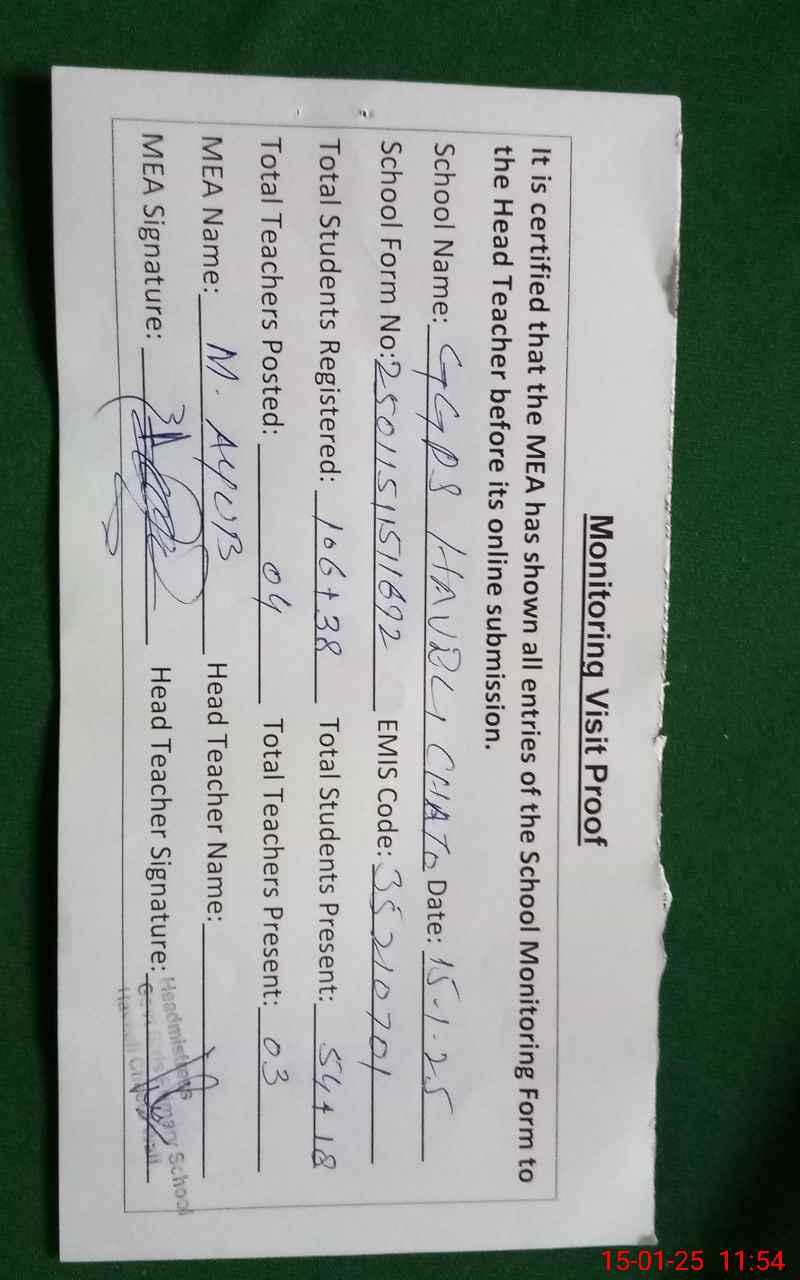 Monitoring Visit Proof
It is certified that the MEA has shown all entries of the School Monitoring Form to
the Head Teacher before its online submission.
School Name: GGPS HAVELI CHATO Date: 15-1-25
School Form No: 2501151511692 EMIS Code: 35210701
Total Students Registered: 106+38 Total Students Present: 54+18
Total Teachers Posted: 04 Total Teachers Present: 03
MEA Name: M. AYUB Head Teacher Name:
MEA Signature: Head Teacher Signature:
Headmistress
Govt Girls Primary School
15-01-25 11:54